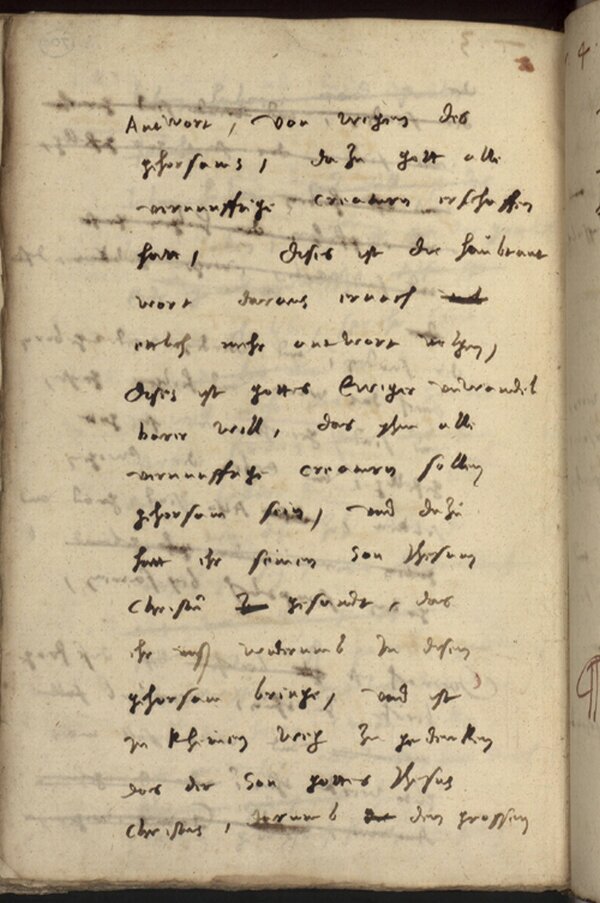 Antwort, von wegen des
gehorsams, da zu gott alle
vernunfftige creaturn erschaffen
hatt, dises ist die haubtant
wort daraus ernach
ettlich mehr antwort volgen,
dises ist gottes Ewiger unwandel
barer will, das yhm alle
vernunfftige creaturn sollen
gehorsam sein, und dazu
hatt ehr seinen Son Jhesum
Christū gesandt, das
ehr uns widerumb In disen
gehorsam bringe, und ist
In kheinen weg zu gedenken
das der Son gottes Jhesus
Christus, darumb den grossen